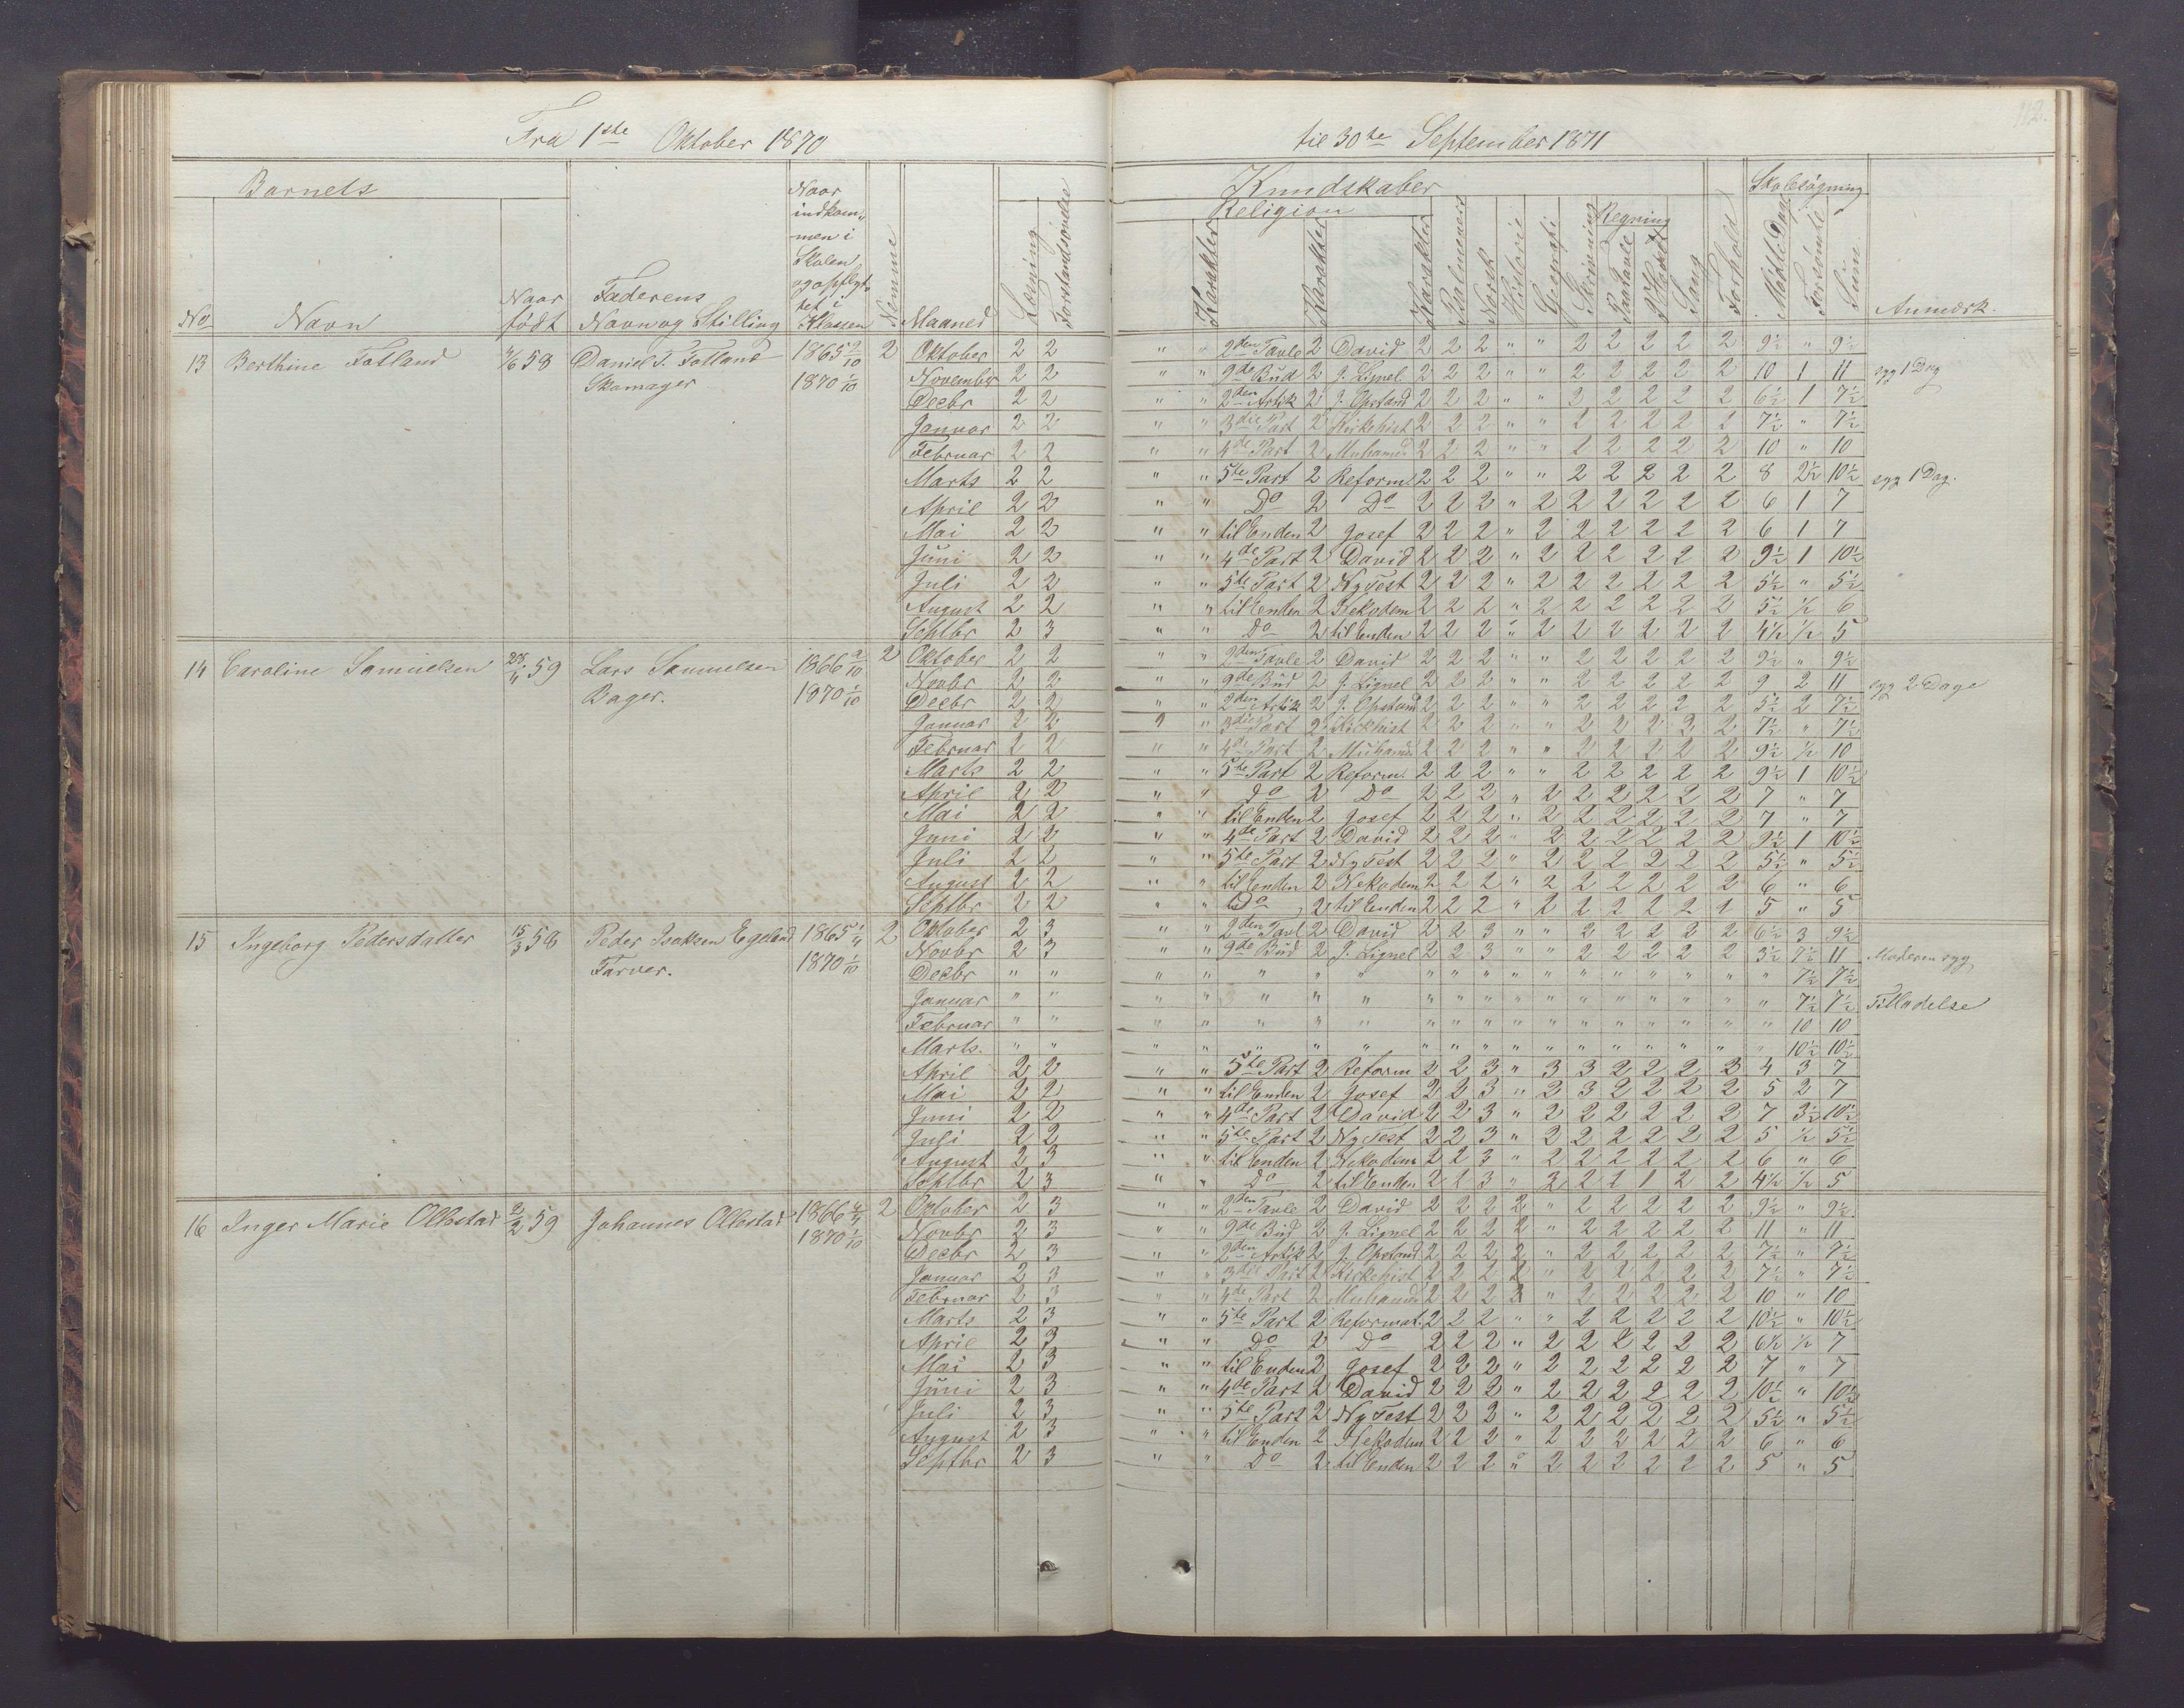 112.
Fra 1ste Oktober 1870 til 30te September 1871
Barnets Kundskaber Skolesøgning
Religion Regning
No Navn Naar født Faderens Navn og Stilling Naar indkommen i Skolen og opflyttet i Klassen Nemme Maaned Læsning Forstandsøvelse Karakter Karakter Karakter Psalmevers Norsk Historie Geografi Skrivning Paa Tavle I Hovedet Sang Forhold Mødte Dage Forsømte Sum Anmærk.
13 Berthine Fotland 58 Daniel T. Fotland 1865 9/10 2 Oktober 2 2 " " 2den Tavle 2 David 2 2 2 " " 2 2 2 2 2 9½ " 9½
Skomager 1870 1/10 November 2 2 " " 9de Bud 2 J. Lignel. 2 2 2 " " 2 2 2 2 2 10 1 11 syg 1 Dag
Decbr 2 2 " " 2den Artik 2 J. Opstand 2 2 2 " " 2 2 2 2 2 6½ 1 7½
Januar 2 2 " " 3die Part 2 Kirkehist 2 2 2 " " 2 2 2 2 2 7½ " 7½
Februar 2 2 " " 4de Part 2 Muhamed 2 2 2 " " 2 2 2 2 2 10 " 10
Marts 2 2 " " 5te Part 2 Reform. 2 2 2 " " 2 2 2 2 2 8 2½ 10½ syg 1 Dag.
April 2 2 " " Do 2 Do 2 2 2 " 2 2 2 2 2 2 6 1 7
Mai 2 2 " " til Enden 2 Josef 2 2 2 " 2 2 2 2 2 2 6 1 7
Juni 2 2 " " 4de Part 2 David 2 2 2 " 2 2 2 2 2 2 9½ 1 10½
Juli 2 2 " " 5te Part 2 Ny Test 2 2 2 " 2 2 2 2 2 2 5½ " 5½
August 2 2 " " til Enden 2 Nekodem 2 2 2 " 2 2 2 2 2 2 5½ ½ 6
Septbr 2 3 " " Do 2 til Enden 2 2 2 " 2 2 2 2 2 2 4½ ½ 5
14 Caroline Samuelsen 59 Lars Samuelsen 1866 2/10 2 Oktober 2 2 " " 2den Tavle 2 David 2 2 2 " " 2 2 2 2 2 9½ " 9½
Bager. 1870 1/10 Novbr 2 2 " " 9de Bud 2 J. Lignel 2 2 2 " " 2 2 2 2 2 9 2 11 syg 2 Dage
Decbr 2 2 " " 2den Artik 2 J. Opstand 2 2 2 " " 2 2 2 2 2 5½ 2 7½
Januar 2 2 " 3die Part 2 Kirkhist 2 2 2 " " 2 2 2 2 2 7½ " 7½
Februar 2 2 " " 4de Part 2 Muhamed 2 2 2 " " 2 2 2 2 2 9½ ½ 10
Marts 2 2 " " 5te Part 2 Reform. 2 2 2 " " 2 2 2 2 2 9½ 1 10½
April 2 2 " " Do 2 Do 2 2 2 " 2 2 2 2 2 2 7 " 7
Mai 2 2 " " til Enden 2 Josef 2 2 2 " 2 2 2 2 2 2 7 " 7
Juni 2 2 " " 4de Part 2 David 2 2 2 " 2 2 2 2 2 2 9½ 1 10½
Juli 2 2 " " 5te Part 2 Ny Test 2 2 2 " 2 2 2 2 2 2 5½ " 5½
August 2 2 " " til Enden 2 Nekodem 2 2 2 " 2 2 2 2 2 2 6 " 6
Septbr 2 2 " " Do 2 til Enden 2 2 2 " 2 2 2 2 2 2 5 " 5
15 Ingeborg Pedersdatter 15/3 58 Peder Isaksen Egeland 1865 2 Oktober 2 3 " " 2den Tavl 2 David 2 2 3 " " 2 2 2 2 2 6½ 3 9½
Farver. 1870 1/10 Novbr 2 3 " " 9de Bud 2 J. Lignel 2 2 3 " " 2 2 2 2 2 3½ 7½ 11 Moderen syg
Decbr " " " " " " " " " " " " " " " " " " " 7½ 7½
Januar " " " " " " " " " " " " " " " " " " " 7½ 7½ Tilladelse
Februar " " " " " " " " " " " " " " " " " " " 10 10
Marts. " " " " " " " " " " " " " " " " " " " 10½ 10½
April 2 2 " " 5te Part 2 Reform 2 2 3 " 3 3 2 2 2 3 4 3 7
Mai 2 2 " " til Enden 2 Josef 2 2 3 " 2 3 2 2 2 2 5 2 7
Juni 2 2 " " 4de Part 2 David 2 2 3 " 2 2 2 2 2 2 7 3½ 10½
Juli 2 2 " " 5te Part 2 Ny Test 2 2 3 " 2 2 2 2 2 2 5 ½ 5½
August 2 3 " " til Enden 2 Nekodem 2 2 3 " 2 2 2 2 2 2 6 " 6
Septbr 2 3 " " Do 2 til Enden 2 2 3 " 2 2 2 1 2 2 4½ ½ 5
16 Inger Marie Ollestad 2/2 59 Johannes Ollestad 1866 2 Oktober 2 3 " " 2den Tavle 2 David 2 2 2 2 " 2 2 2 2 2 9½ " 9½
1870 1/10 Novbr 2 3 " " 9de Bud 2 J. Lignel 2 2 2 2 " 2 2 2 2 2 11 " 11
Decbr 2 3 " " 2den Artik 2 J. Opstand 2 2 2 2 " 2 2 2 2 2 7½ " 7½
Januar 2 3 " " 3die Part 2 Kirkehist 2 2 2 2 " 2 2 2 2 2 7½ " 7½
Februar 2 3 " " 4de Part 2 Muhamed 2 2 2 2 " 2 2 2 2 2 10 " 10
Marts 2 3 " " 5te Part 2 Reformat. 2 2 2 " " 2 2 2 2 2 10½ " 10½
April 2 3 " " Do 2 Do 2 2 2 " 2 2 2 2 2 2 6½ ½ 7
Mai 2 3 " " til Enden 2 Josef 2 2 2 " 2 2 2 2 2 2 7 " 7
Juni 2 3 " " 4de Part 2 David 2 2 2 " 2 2 2 2 2 2 10½ " 10½
Juli 2 3 " " 5te Part 2 Ny Test 2 2 2 " 2 2 2 2 2 2 5½ " 5½
August 2 3 " " til Enden 2 Nekodem 2 2 2 " 2 2 2 2 2 2 6 " 6
Septbr 2 3 " " Do 2 til Enden 2 2 2 " 2 2 2 2 2 2 5 " 5